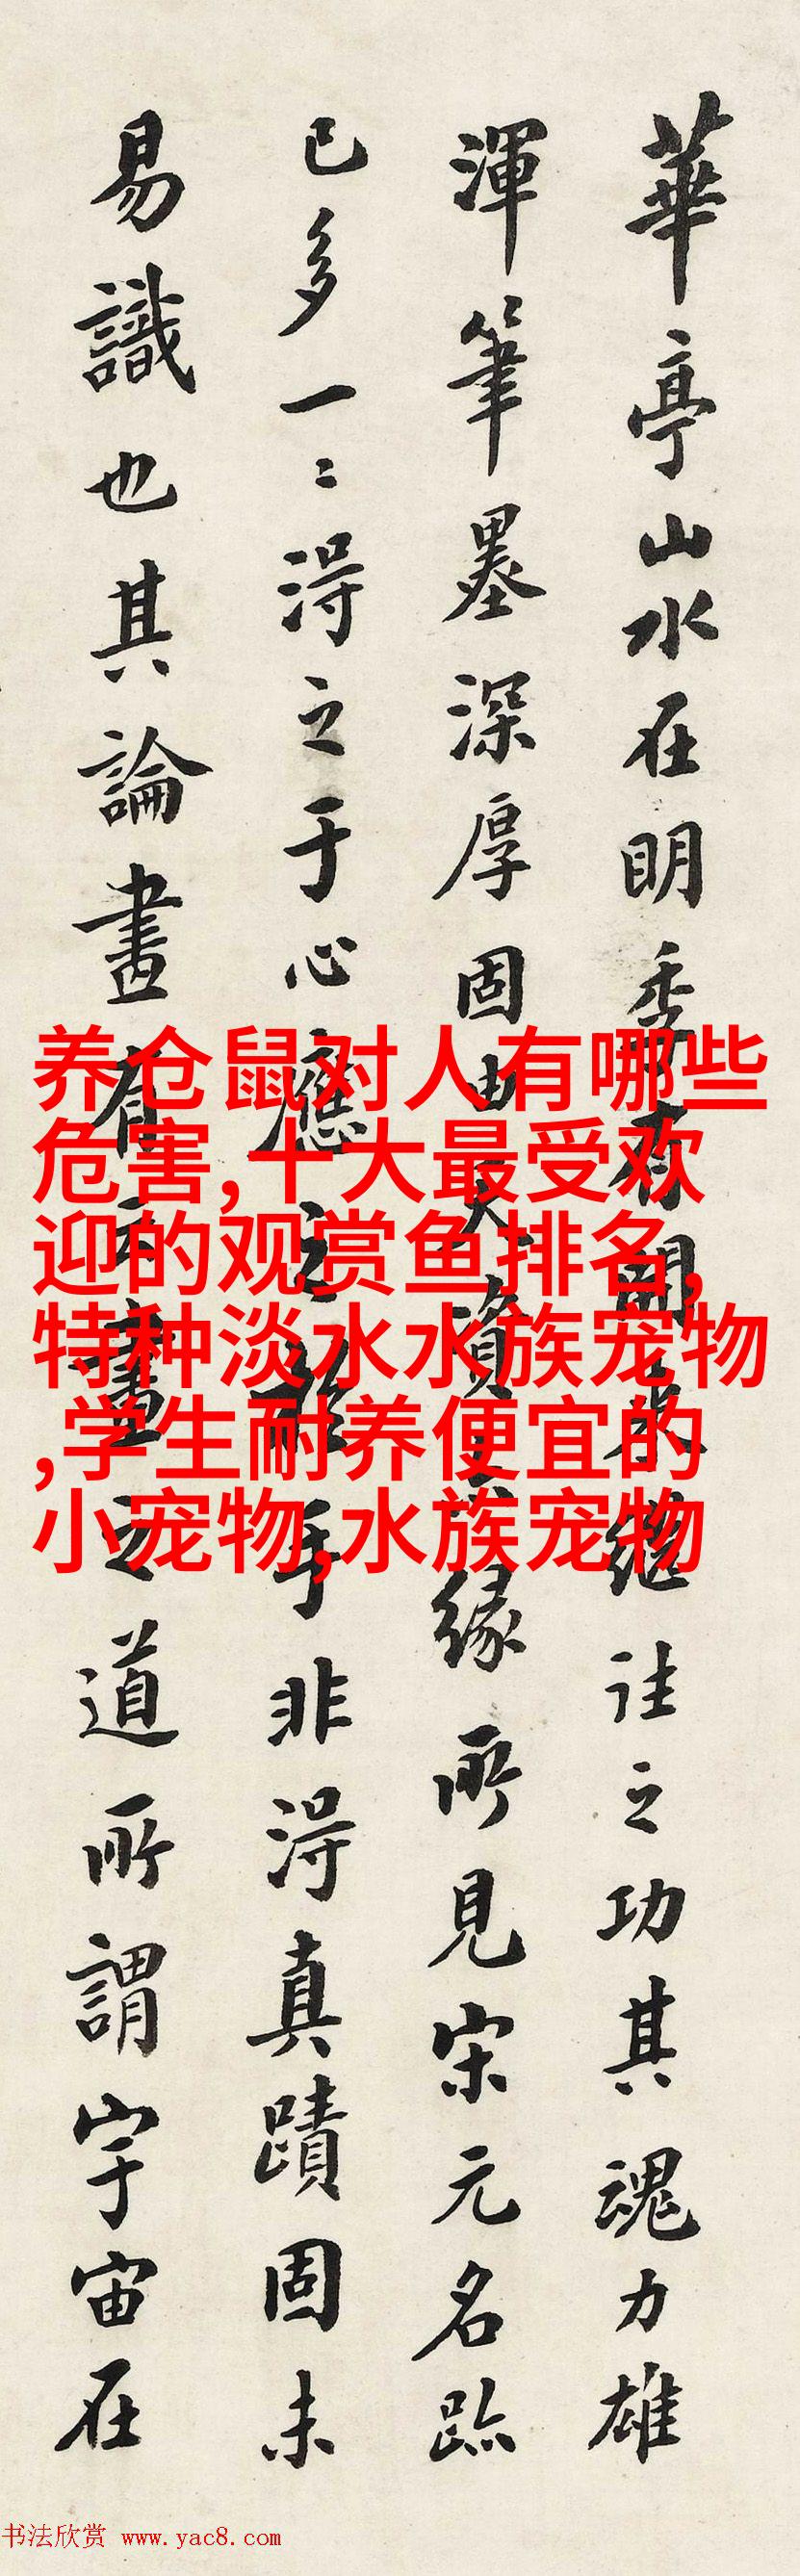 華亭山水在明季有開来継往之功其魂力雄
渾筆墨深厚固由天資緣所見宋元名跡
已多一々得之于心應之於手非得真蹟固未
易識也其論畫有云畫之道所謂宇宙在
养仓鼠对人有哪些
危害,十大最受欢
迎的观赏鱼排名,
特种淡水水族宠物
,学生耐养便宜的
小宠物,水族宠物
书法欣赏 www.yac8.com